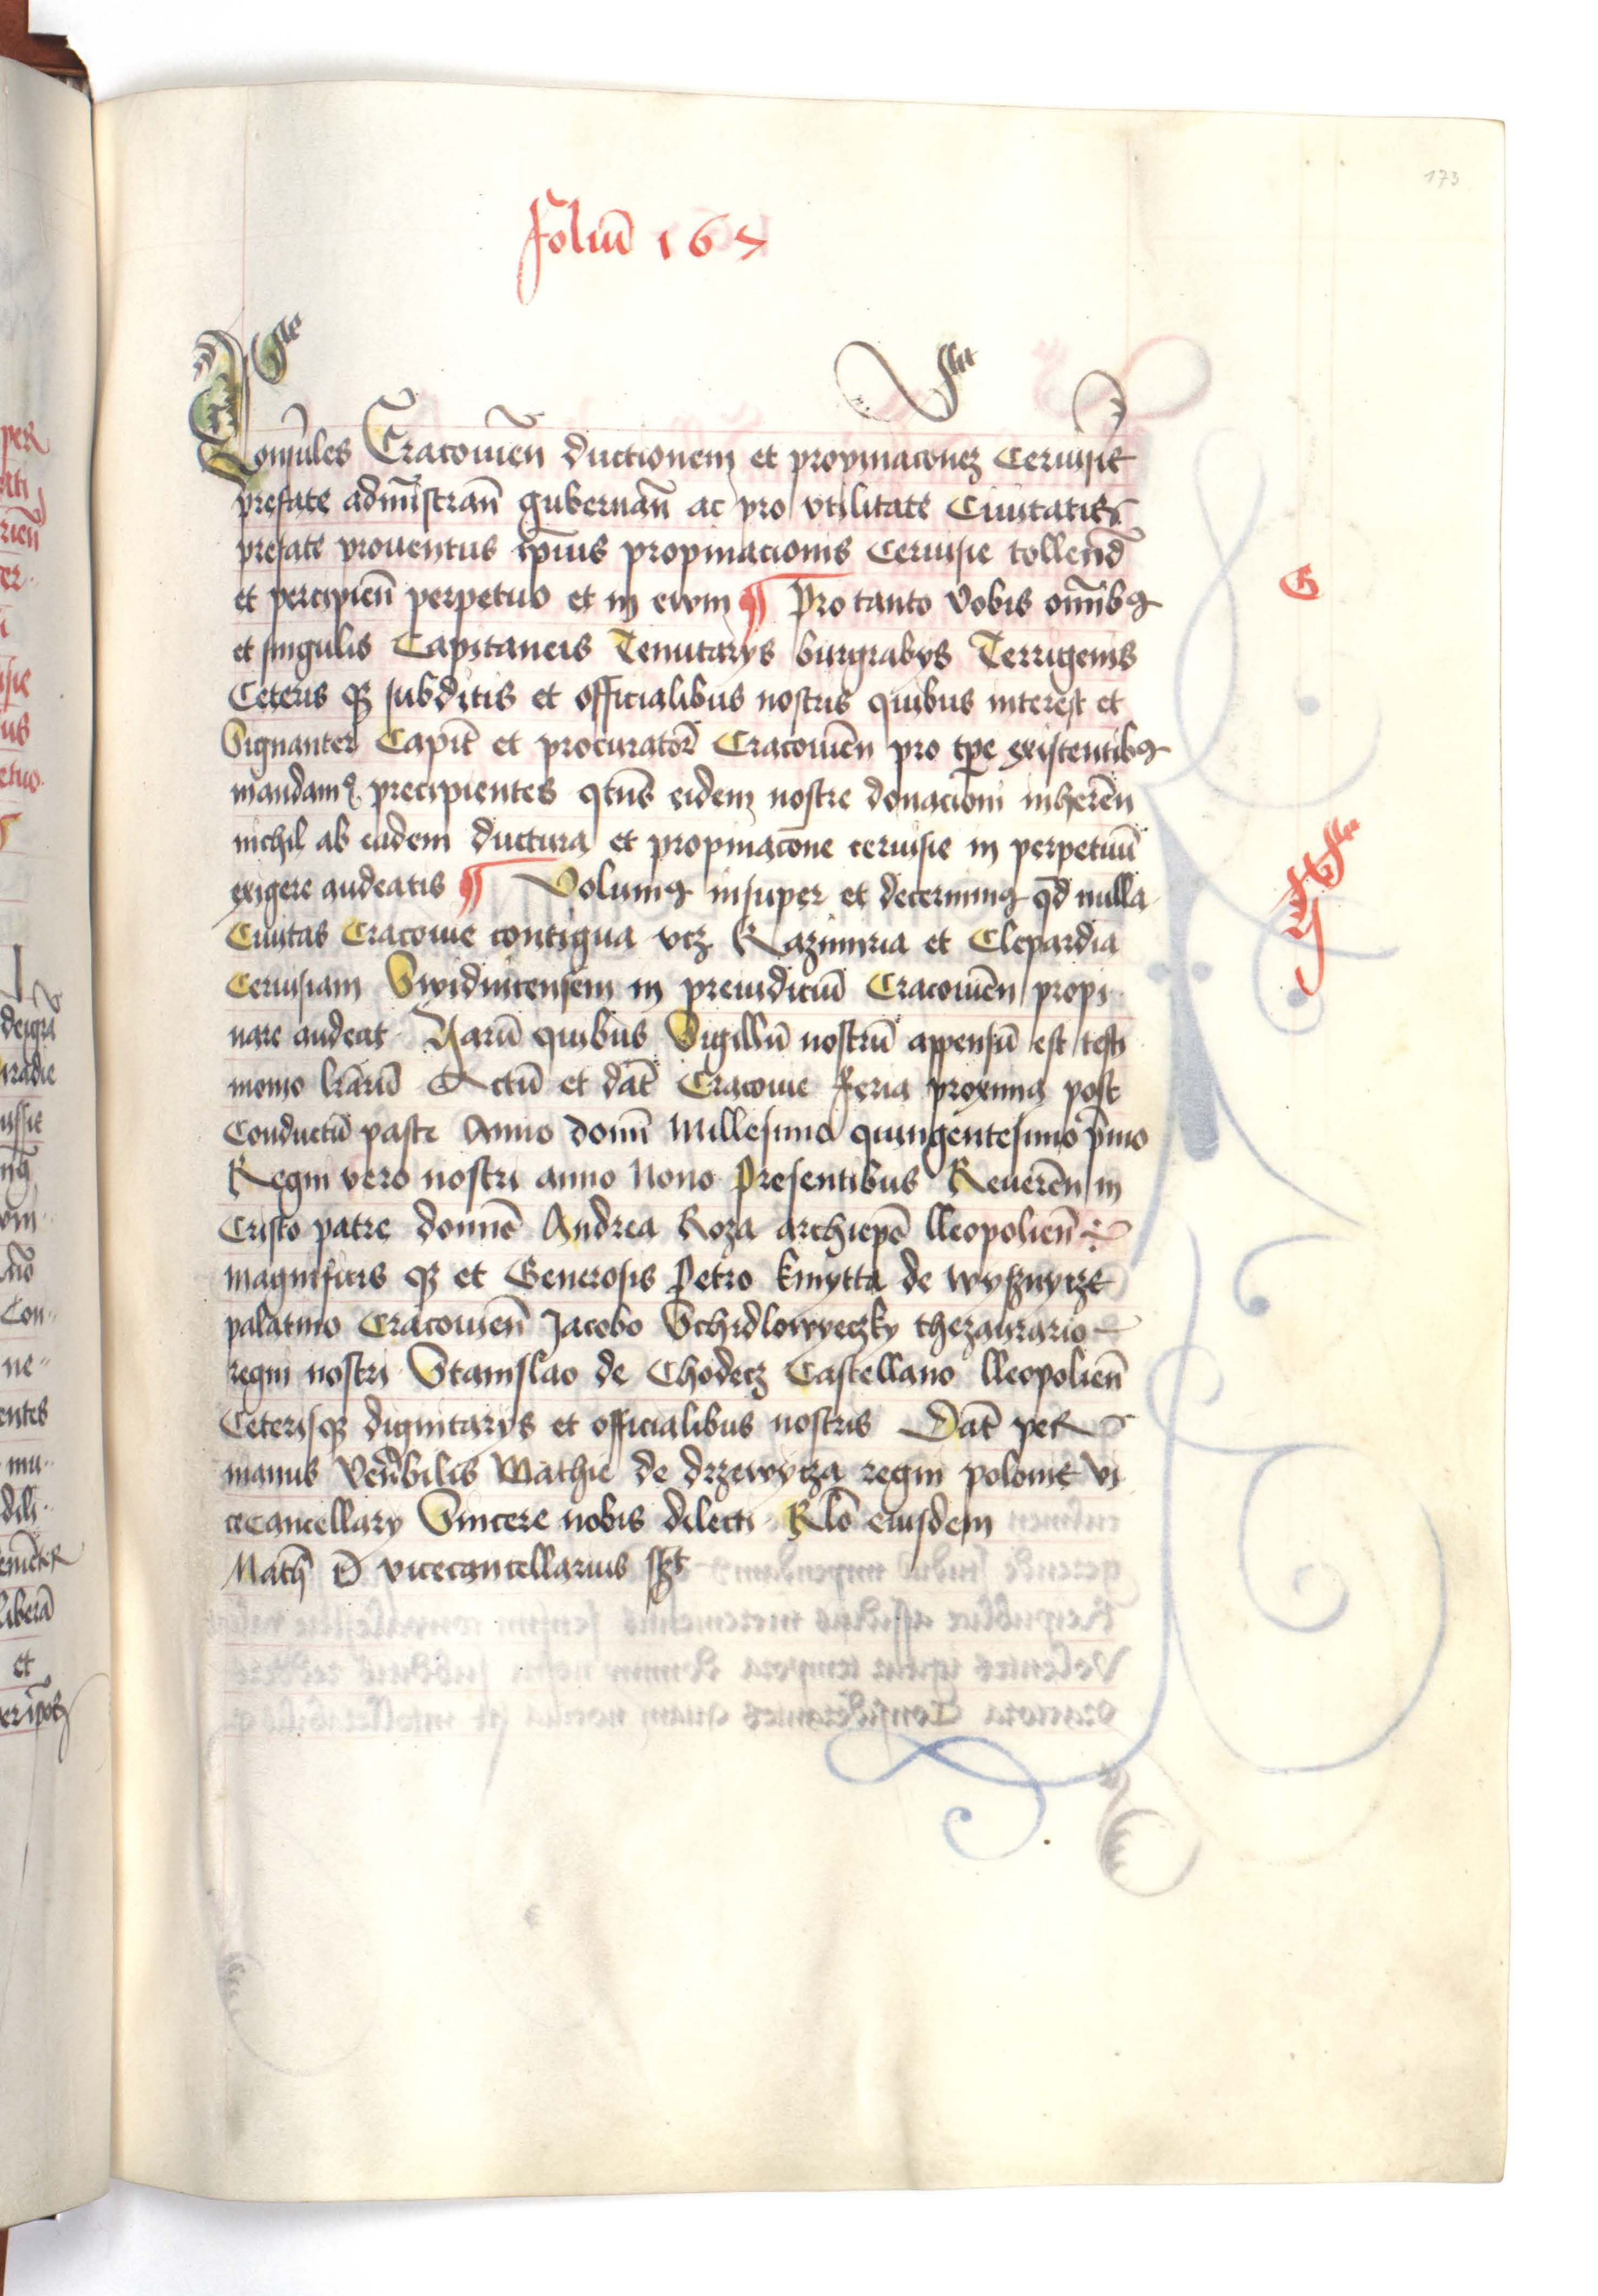 173
foliū 167
Consules Cracouieñ ductionem et propinacionez Ceruisie
prefate admīstrañ gubernañ ac pro vtilitate Ciuitatis
prefate prouentus ip̄ius propinacionis Ceruisie tollend̄
et percipieñ perpetuo et in evvm ¶ Pro tanto Vobis om̄ibꝯ
et singulis Capitaneis Tenutarys burgrabys Terrigenis
Ceteris qȝ subditis et officialibus nostris quibus interest et
Signanter Capit̄ et procurator̄ Cracouieñ pro tp̄e existentibꝯ
mandamꝯ precipientes qt̄us eidem nostre donacioni inhereñ
nichil ab eadem ductura et propinacōne ceruisie in perpetuū
exigere audeatis ¶ Volumꝯ insuper et decernimꝯ qd̄ nulla
Ciuitas Cracouie contigua vcȝ Kazimiria et Clepardia
Ceruisiam Swidnicensem in preiudiciū Cracouieñ propi
nare audeat Harū quibus Sigillū nostrū appensū est testi
monio lr̄arū Actū et dat̄ Cracouie feria proxima post
Conductū pasce Anno domī Millesimo quingentesimo p̄mo
Regni vero nostri anno Nono Presentibus Revereñ in
Cristo patre domnō Andrea Roza archiepō lleopolieñ
magnificis qȝ et Generosis Petro kmytta de wyssnycze
palatino Cracouieñ Jacobo Schidlowyeczky thezaurario
regni nostri Stanislao de Chodecz Castellano lleopolieñ
Ceterisqȝ dignitarys et officialibus nostris Dat̄ per
manus Ven̄bilis Mathie de drzewycza regni polonie Vi
cecancellary Sincere nobis dilecti Rlō eiusdem
Math̄ D̄ vicecancellarius sszt